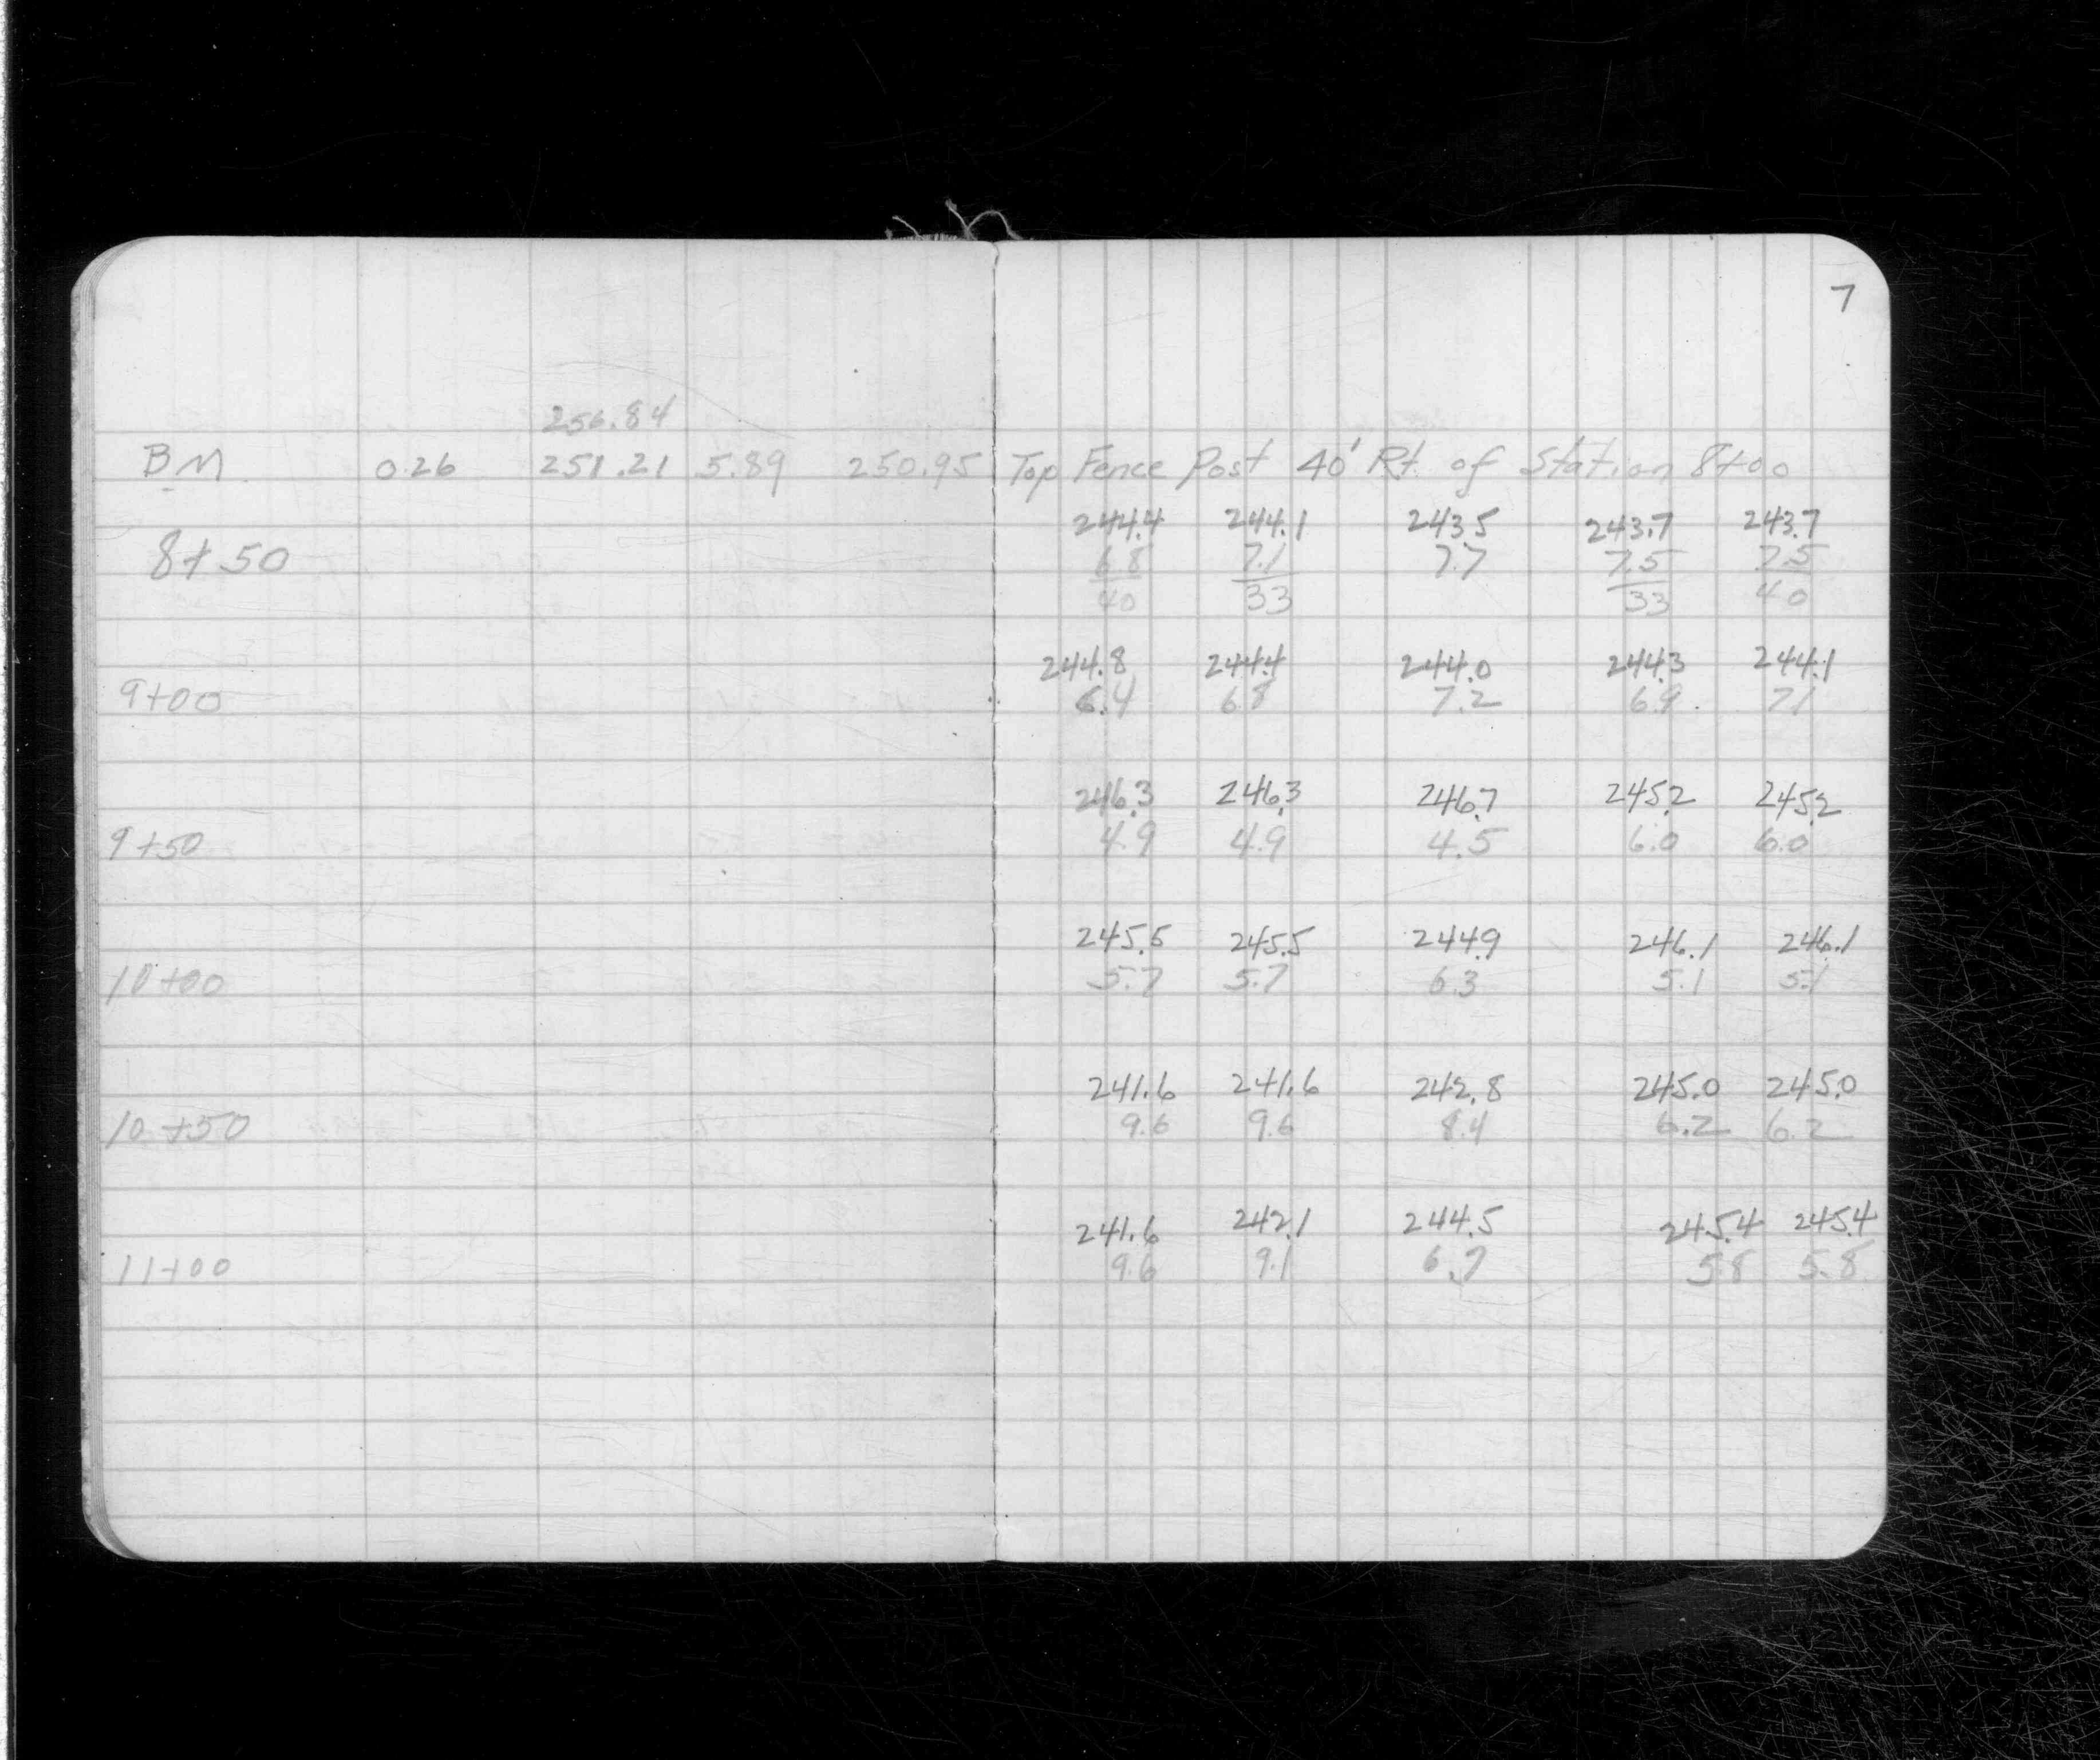 7
256.84
BM 0.26 251.21 5.89 250.95 Top Fence Post 40' Rt. of Station 8+00
244.4 244.1 243.5 243.7 243.7
8+50 6.8 7.1 7.7 7.5 7.5
40 33 33 40
244.8 244.4 244.0 244.3 244.1
9+00 6.4 6.8 7.2 6.9 7.1
246.3 246.3 246.7 245.2 245.2
9+50 4.9 4.9 4.5 6.0 6.0
245.5 245.5 244.9 246.1 246.1
10+00 5.7 5.7 6.3 5.1 5.1
241.6 241.6 242.8 245.0 245.0
10+50 9.6 9.6 8.4 6.2 6.2
241.6 242.1 244.5 245.4 245.4
11+00 9.6 9.1 6.7 5.8 5.8